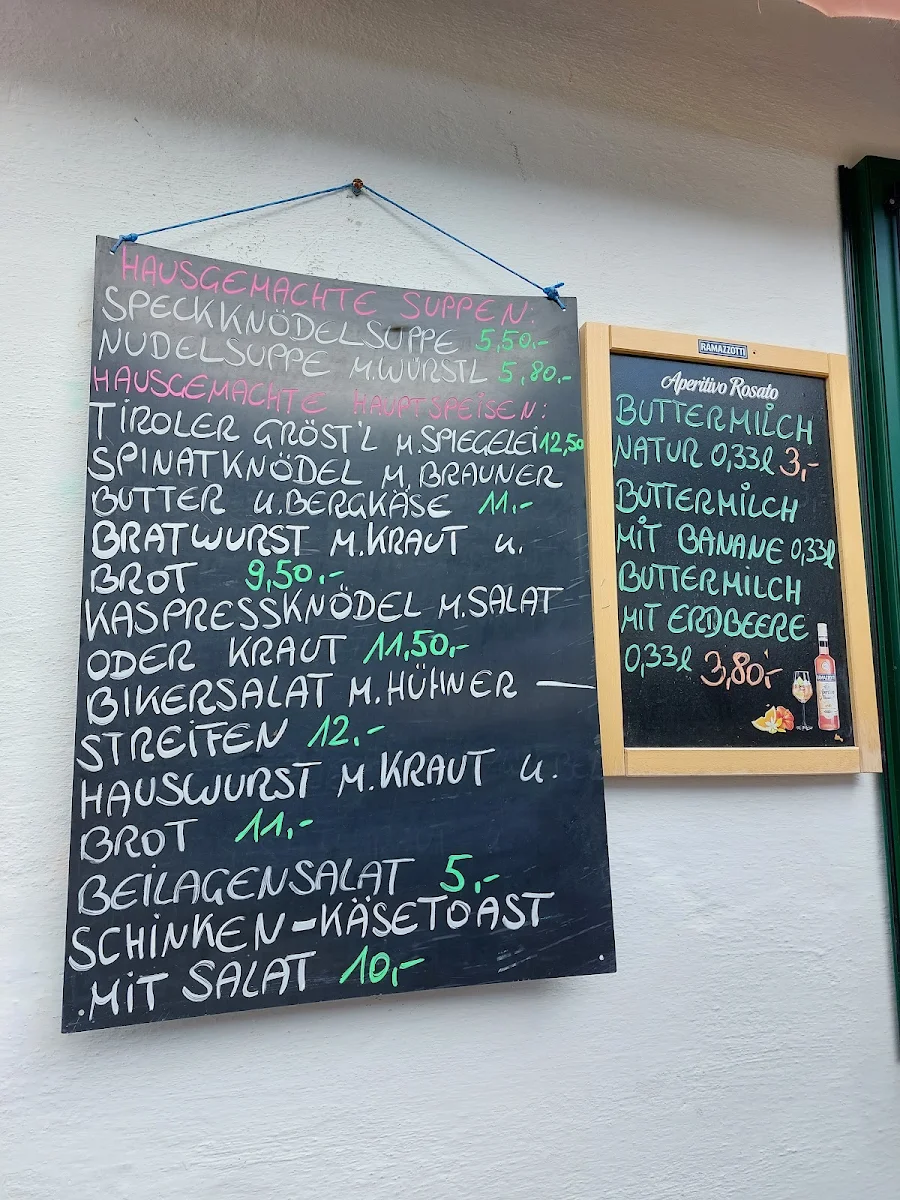 HAUSGEMACHTE SUPPEN:
SPECKKNÖDELSUPPE 5,50.-
NUDELSUPPE M.WÜRSTL 5,80.-
HAUSGEMACHTE HAUPTSPEISEN:
TIROLER GRÖST'L M.SPIEGELEI 12,50
SPINATKNÖDEL M. BRAUNER
BUTTER U.BERGKÄSE 11.-
BRATWURST M.KRAUT U.
BROT 9,50.-
KASPRESSKNÖDEL M.SALAT
ODER KRAUT 11,50.-
BIKERSALAT M.HÜHNER —
STREIFEN 12.-
HAUSWURST M.KRAUT U.
BROT 11,-
BEILAGENSALAT 5,-
SCHINKEN-KÄSETOAST
.MIT SALAT 10,-
RAMAZZOTTI
Aperitivo Rosato
BUTTERMILCH
NATUR 0,33l 3,-
BUTTERMILCH
MIT BANANE 0,33l
BUTTERMILCH
MIT ERDBEERE
0,33l 3,80.-